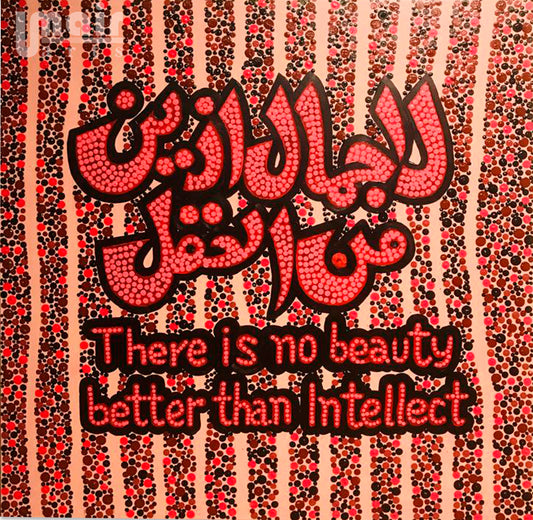 لا جمال ازين
من العقل
There is no beauty
better than Intellect